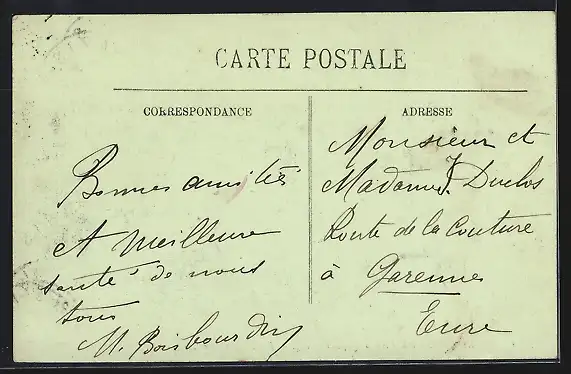 CARTE POSTALE
CORRESPONDANCE
Bonnes amitiés
et meilleure
santé de nous
tous
M. Boisbourdin
ADRESSE
Monsieur et
Madame J. Duclos
Route de la Couture
à Garennes
Eure